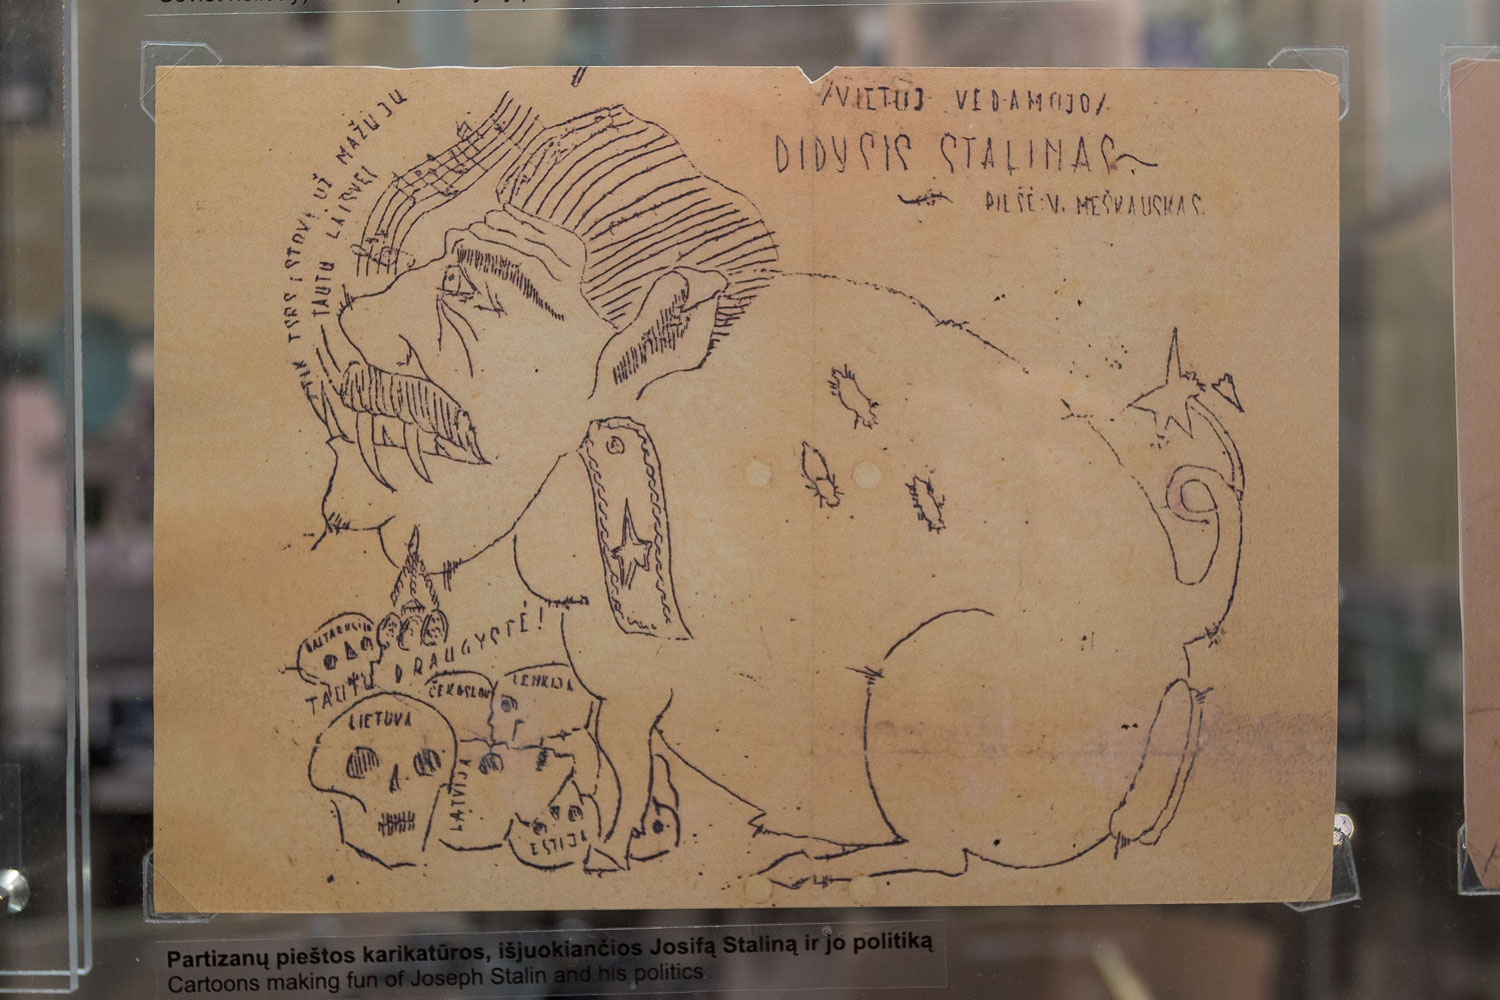 /VIETOJ VEDAMOJO/
DIDYSIS STALINAS
PIEŠĖ: V. MEŠKAUSKAS.
TIK TSRS STOVI UŽ MAŽUJŲ
TAUTŲ LAISVEI
TAUTŲ DRAUGYSTĖ!
ČEKOSLOV
LENKIJA
LIETUVA
LATVIJA
ESTIJA
Partizanų pieštos karikatūros, išjuokiančios Josifą Staliną ir jo politiką
Cartoons making fun of Joseph Stalin and his politics